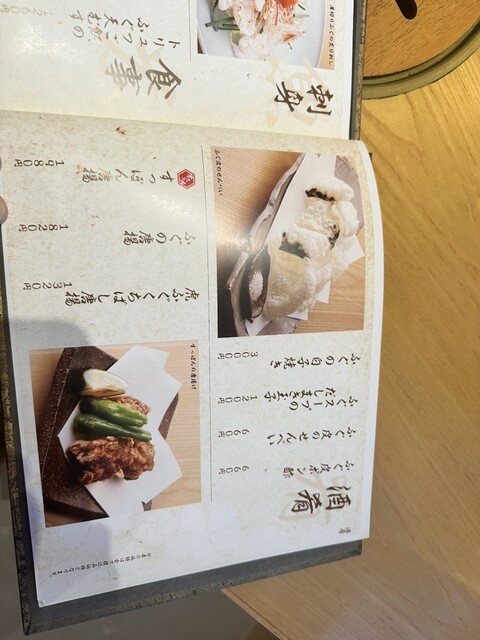 酒肴
ふぐ皮ポン酢
660円
ふぐ皮のせんべい
660円
ふぐスープの
だしまき玉子
1200円
ふぐの白子焼き
3000円
ふぐ皮のせんべい
虎ふぐくちばし唐揚
1320円
ふぐの唐揚
1820円
すっぽん唐揚
1980円
すっぽんの唐揚げ
刺身
食事
トリュフつこ飯の
ふぐ天むす